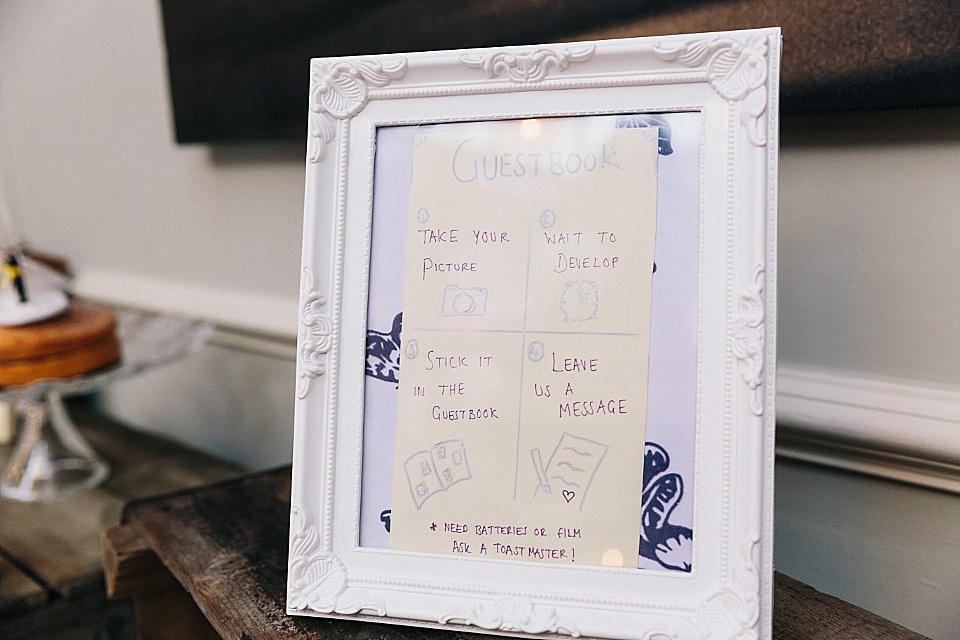 GUESTBOOK
1
TAKE YOUR
PICTURE
2
WAIT TO
DEVELOP
3
STICK IT
IN THE
GUESTBOOK
4
LEAVE
US A
MESSAGE
* NEED BATTERIES OR FILM
ASK A TOASTMASTER!